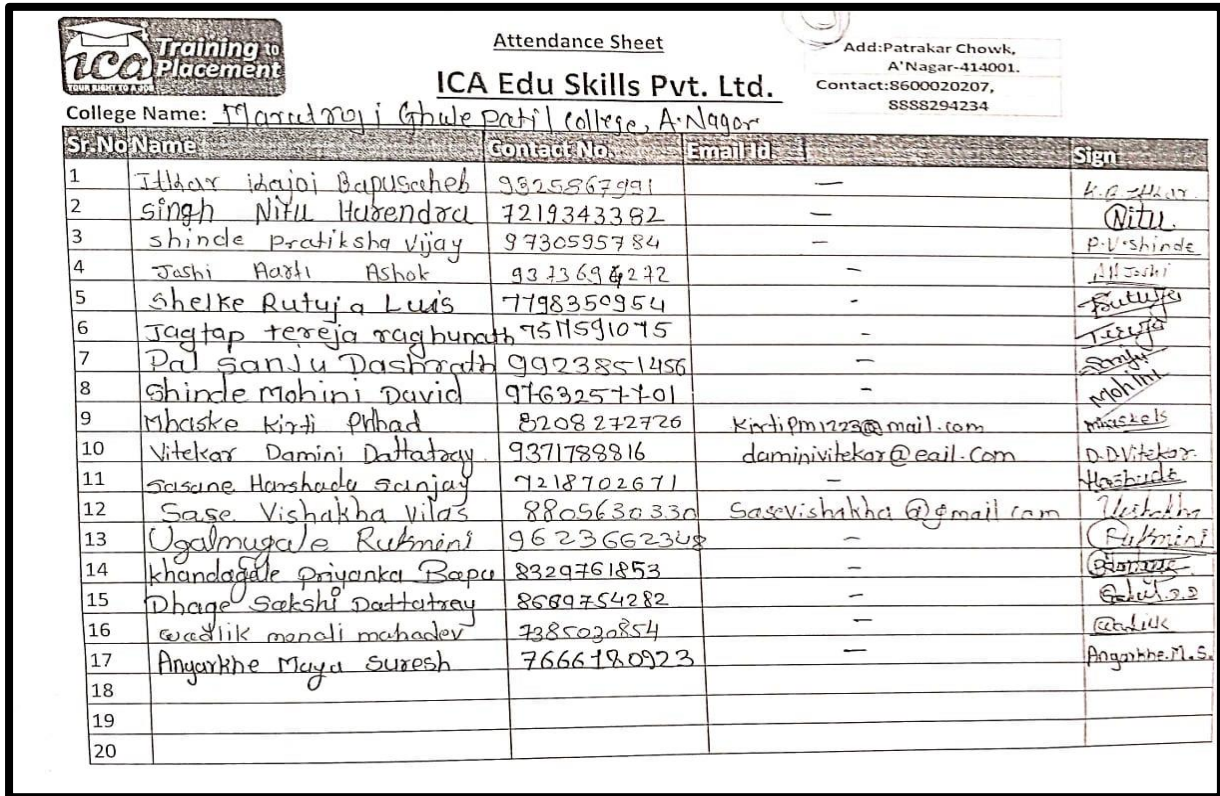 ica Training to Placement
YOUR RIGHT TO A JOB
Attendance Sheet
ICA Edu Skills Pvt. Ltd.
Add:Patrakar Chowk,
A'Nagar-414001.
Contact:8600020207,
8888294234
College Name: Marutraoji Ghule Patil College, A.Nagar
Sr.No Name Contact No. Email Id Sign
1 Bapusaheb 9325867991 —
2 singh Nitu Harendra 7219343382 — Nitu.
3 shinde Pratiksha Vijay 9730595784 — P.V.shinde
4 Joshi Aarti Ashok - Joshi
5 Shelke Rutuja Luis 7798350954 - Rutuja
6 Jagtap tereja raghunath - Tereja
7 Pal Sanju Dashrath 9923851456 — Sanju
8 Shinde Mohini David 9763257701 - Mohini
9 Mhaske Kirti 8208272726 kirtipm1223@mail.com
10 Vitekar Damini Dattatray 9371788816 daminivitekar@eail.com D.D.Vitekar.
11 Sasane Harshada Sanjay 7218702671 —
12 Sase Vishakha Vilas 8805630330 Sasevishakha@gmail com
13 Ugalmugale Rukmini 9623662348 — Rukmini
14 khandagale Priyanka Bapu 8329761853 —
15 Dhage Sakshi Dattatray 8669754282 —
16 monali mahadev 7385030854 —
17 Angarkhe Maya Suresh 7666180923 — Angarkhe.M.S.
18
19
20